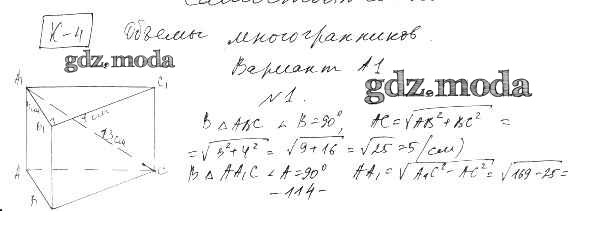 К-4 Объемы многогранников.
gdz.moda
Вариант А1
gdz.moda
№1.
A₁ C₁
B₁ 4 см
13 см
A C
B
В △ ABC ∠ B=90°, AC=√AB²+BC² =
=√3²+4² = √9+16 = √25 =5 (см)
В △ AA₁C ∠ A=90° AA₁=√A₁C²-AC² = √169-25 =
-114-